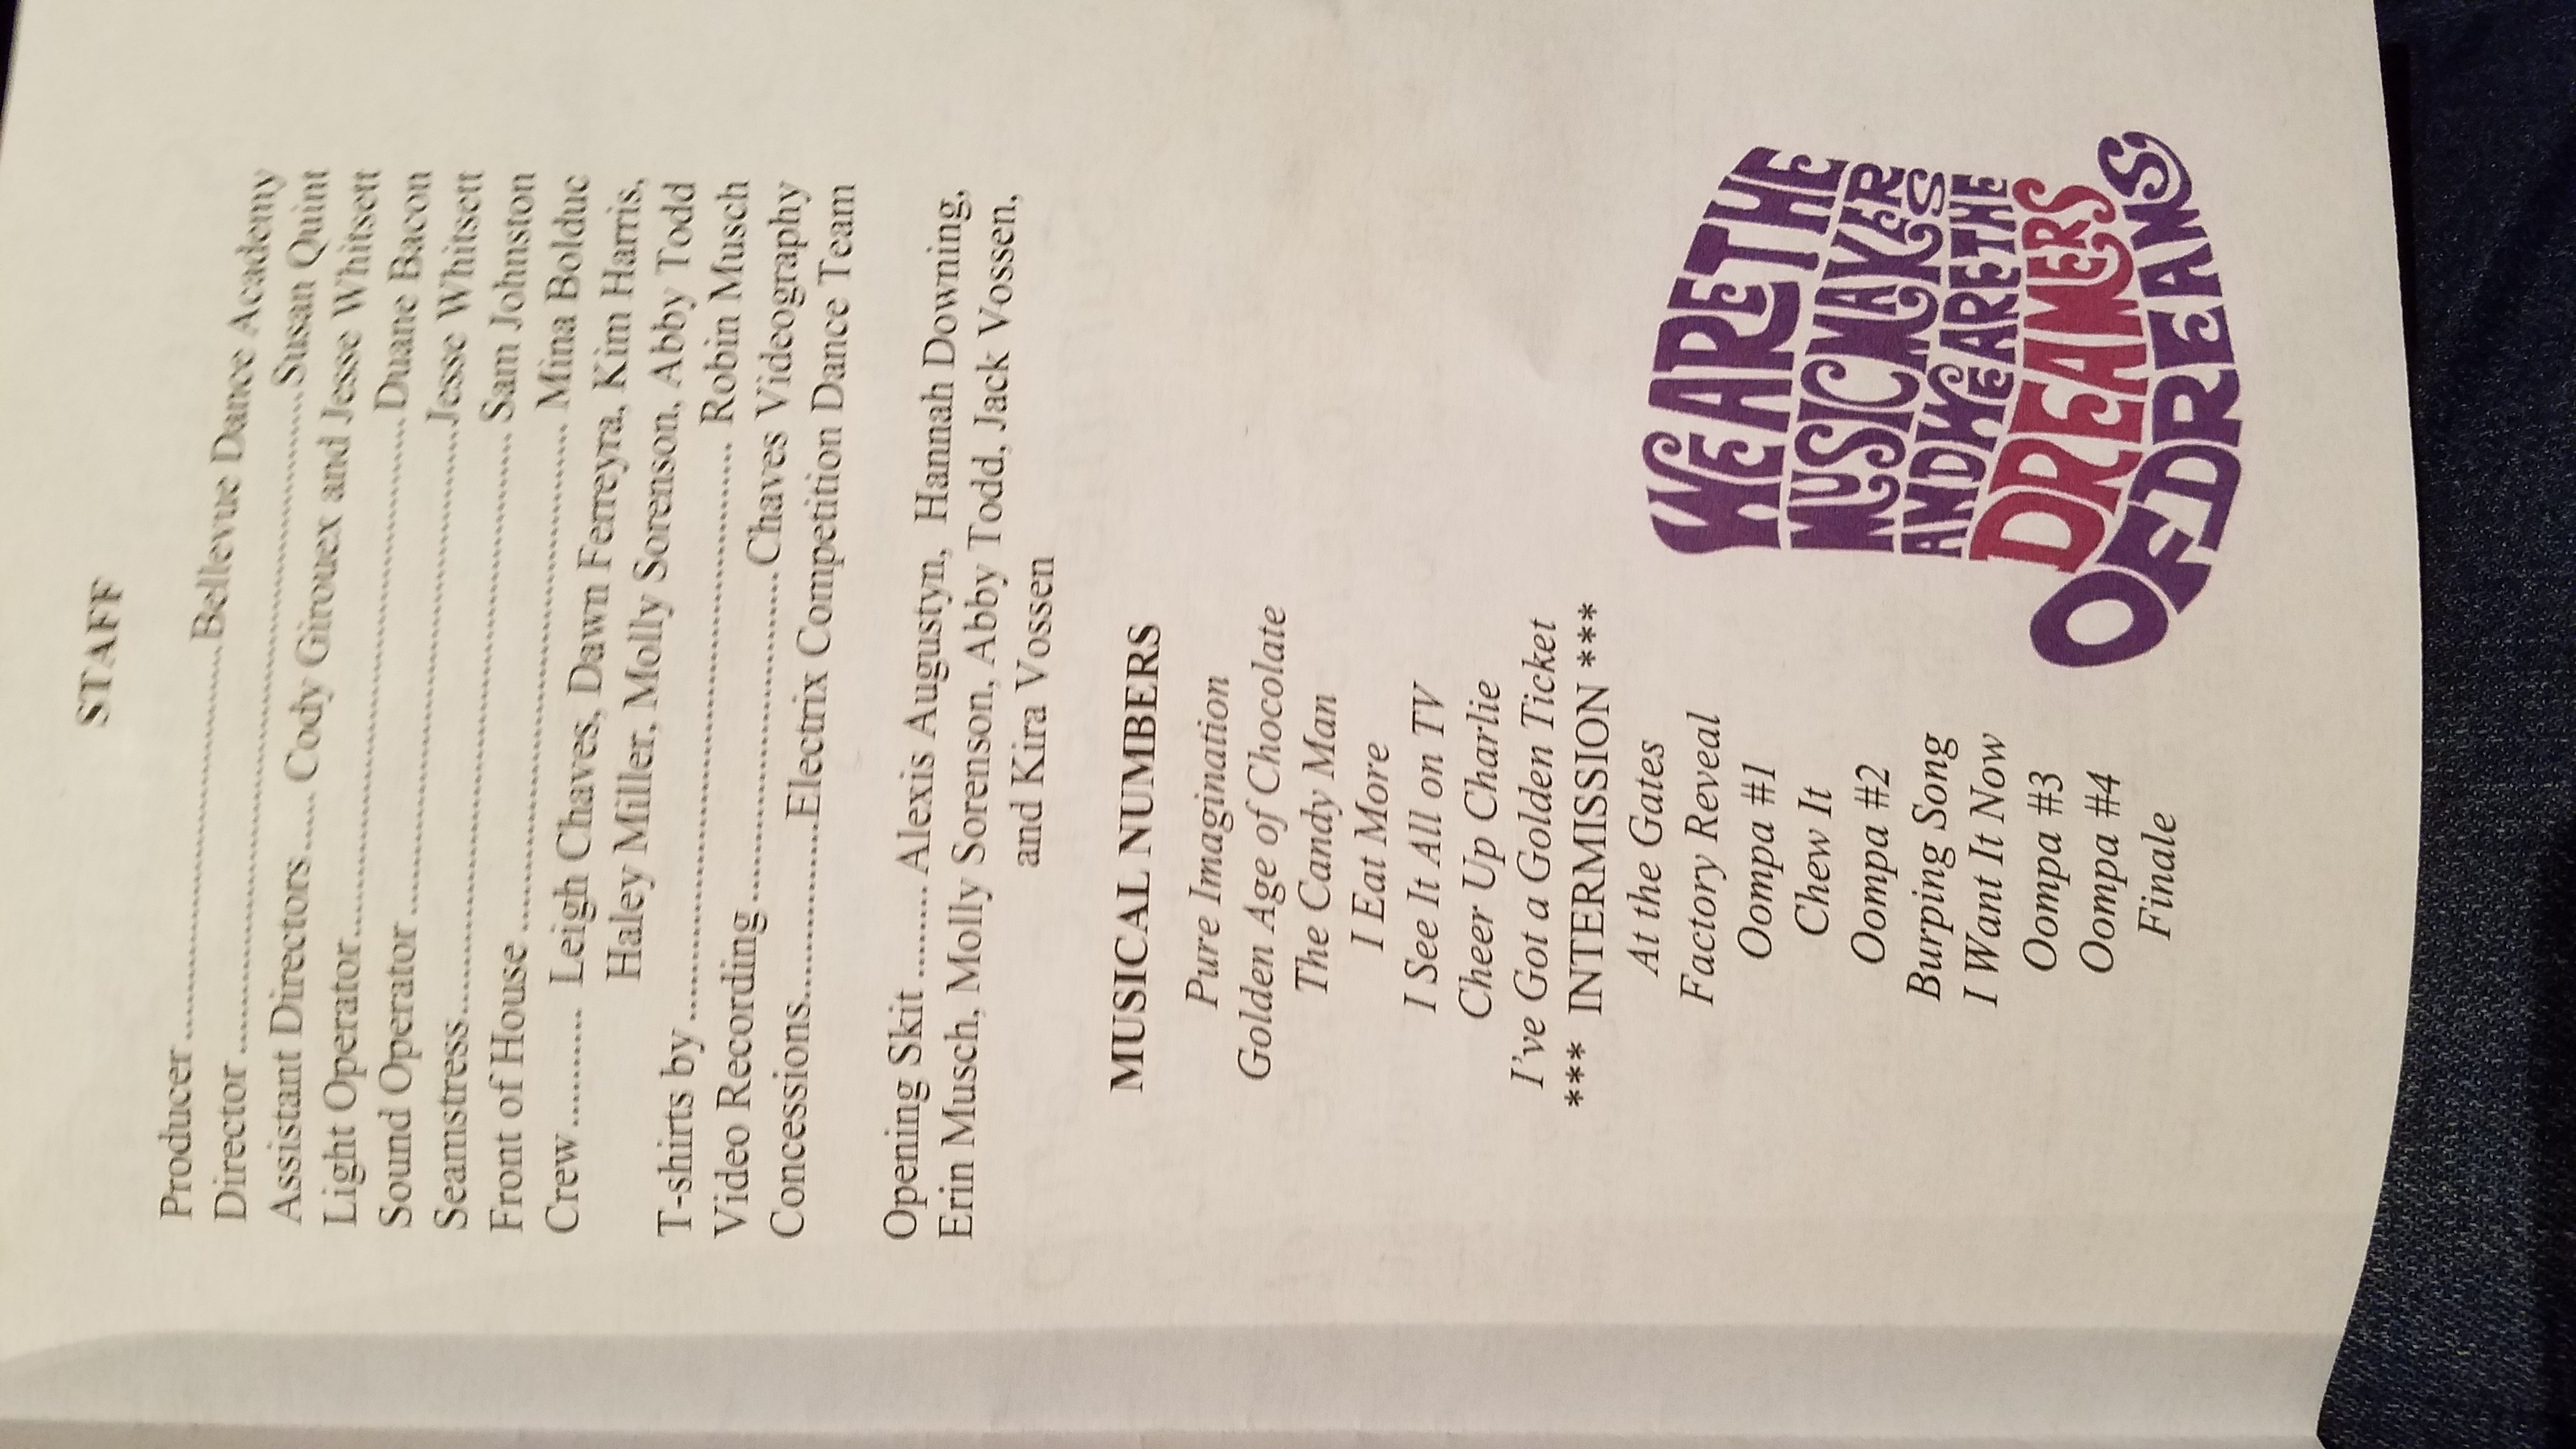 STAFF
Producer..............................Bellevue Dance Academy
Director..................................................Susan Quint
Assistant Directors...... Cody Girouex and Jesse Whitsett
Light Operator........................................Duane Bacon
Sound Operator ......................................Jesse Whitsett
Seamstress............................................. Sam Johnston
Front of House ...................................... Mina Bolduc
Crew........... Leigh Chaves, Dawn Ferreyra, Kim Harris,
Haley Miller, Molly Sorenson, Abby Todd
T-shirts by ............................................. Robin Musch
Video Recording ..........................Chaves Videography
Concessions...............Electrix Competition Dance Team
Opening Skit .......... Alexis Augustyn, Hannah Downing,
Erin Musch, Molly Sorenson, Abby Todd, Jack Vossen,
and Kira Vossen
MUSICAL NUMBERS
Pure Imagination
Golden Age of Chocolate
The Candy Man
I Eat More
I See It All on TV
Cheer Up Charlie
I've Got a Golden Ticket
*** INTERMISSION ***
At the Gates
Factory Reveal
Oompa #1
Chew It
Oompa #2
Burping Song
I Want It Now
Oompa #3
Oompa #4
Finale
WE ARE THE
MUSIC MAKERS
AND WE ARE THE
DREAMERS
OF DREAMS